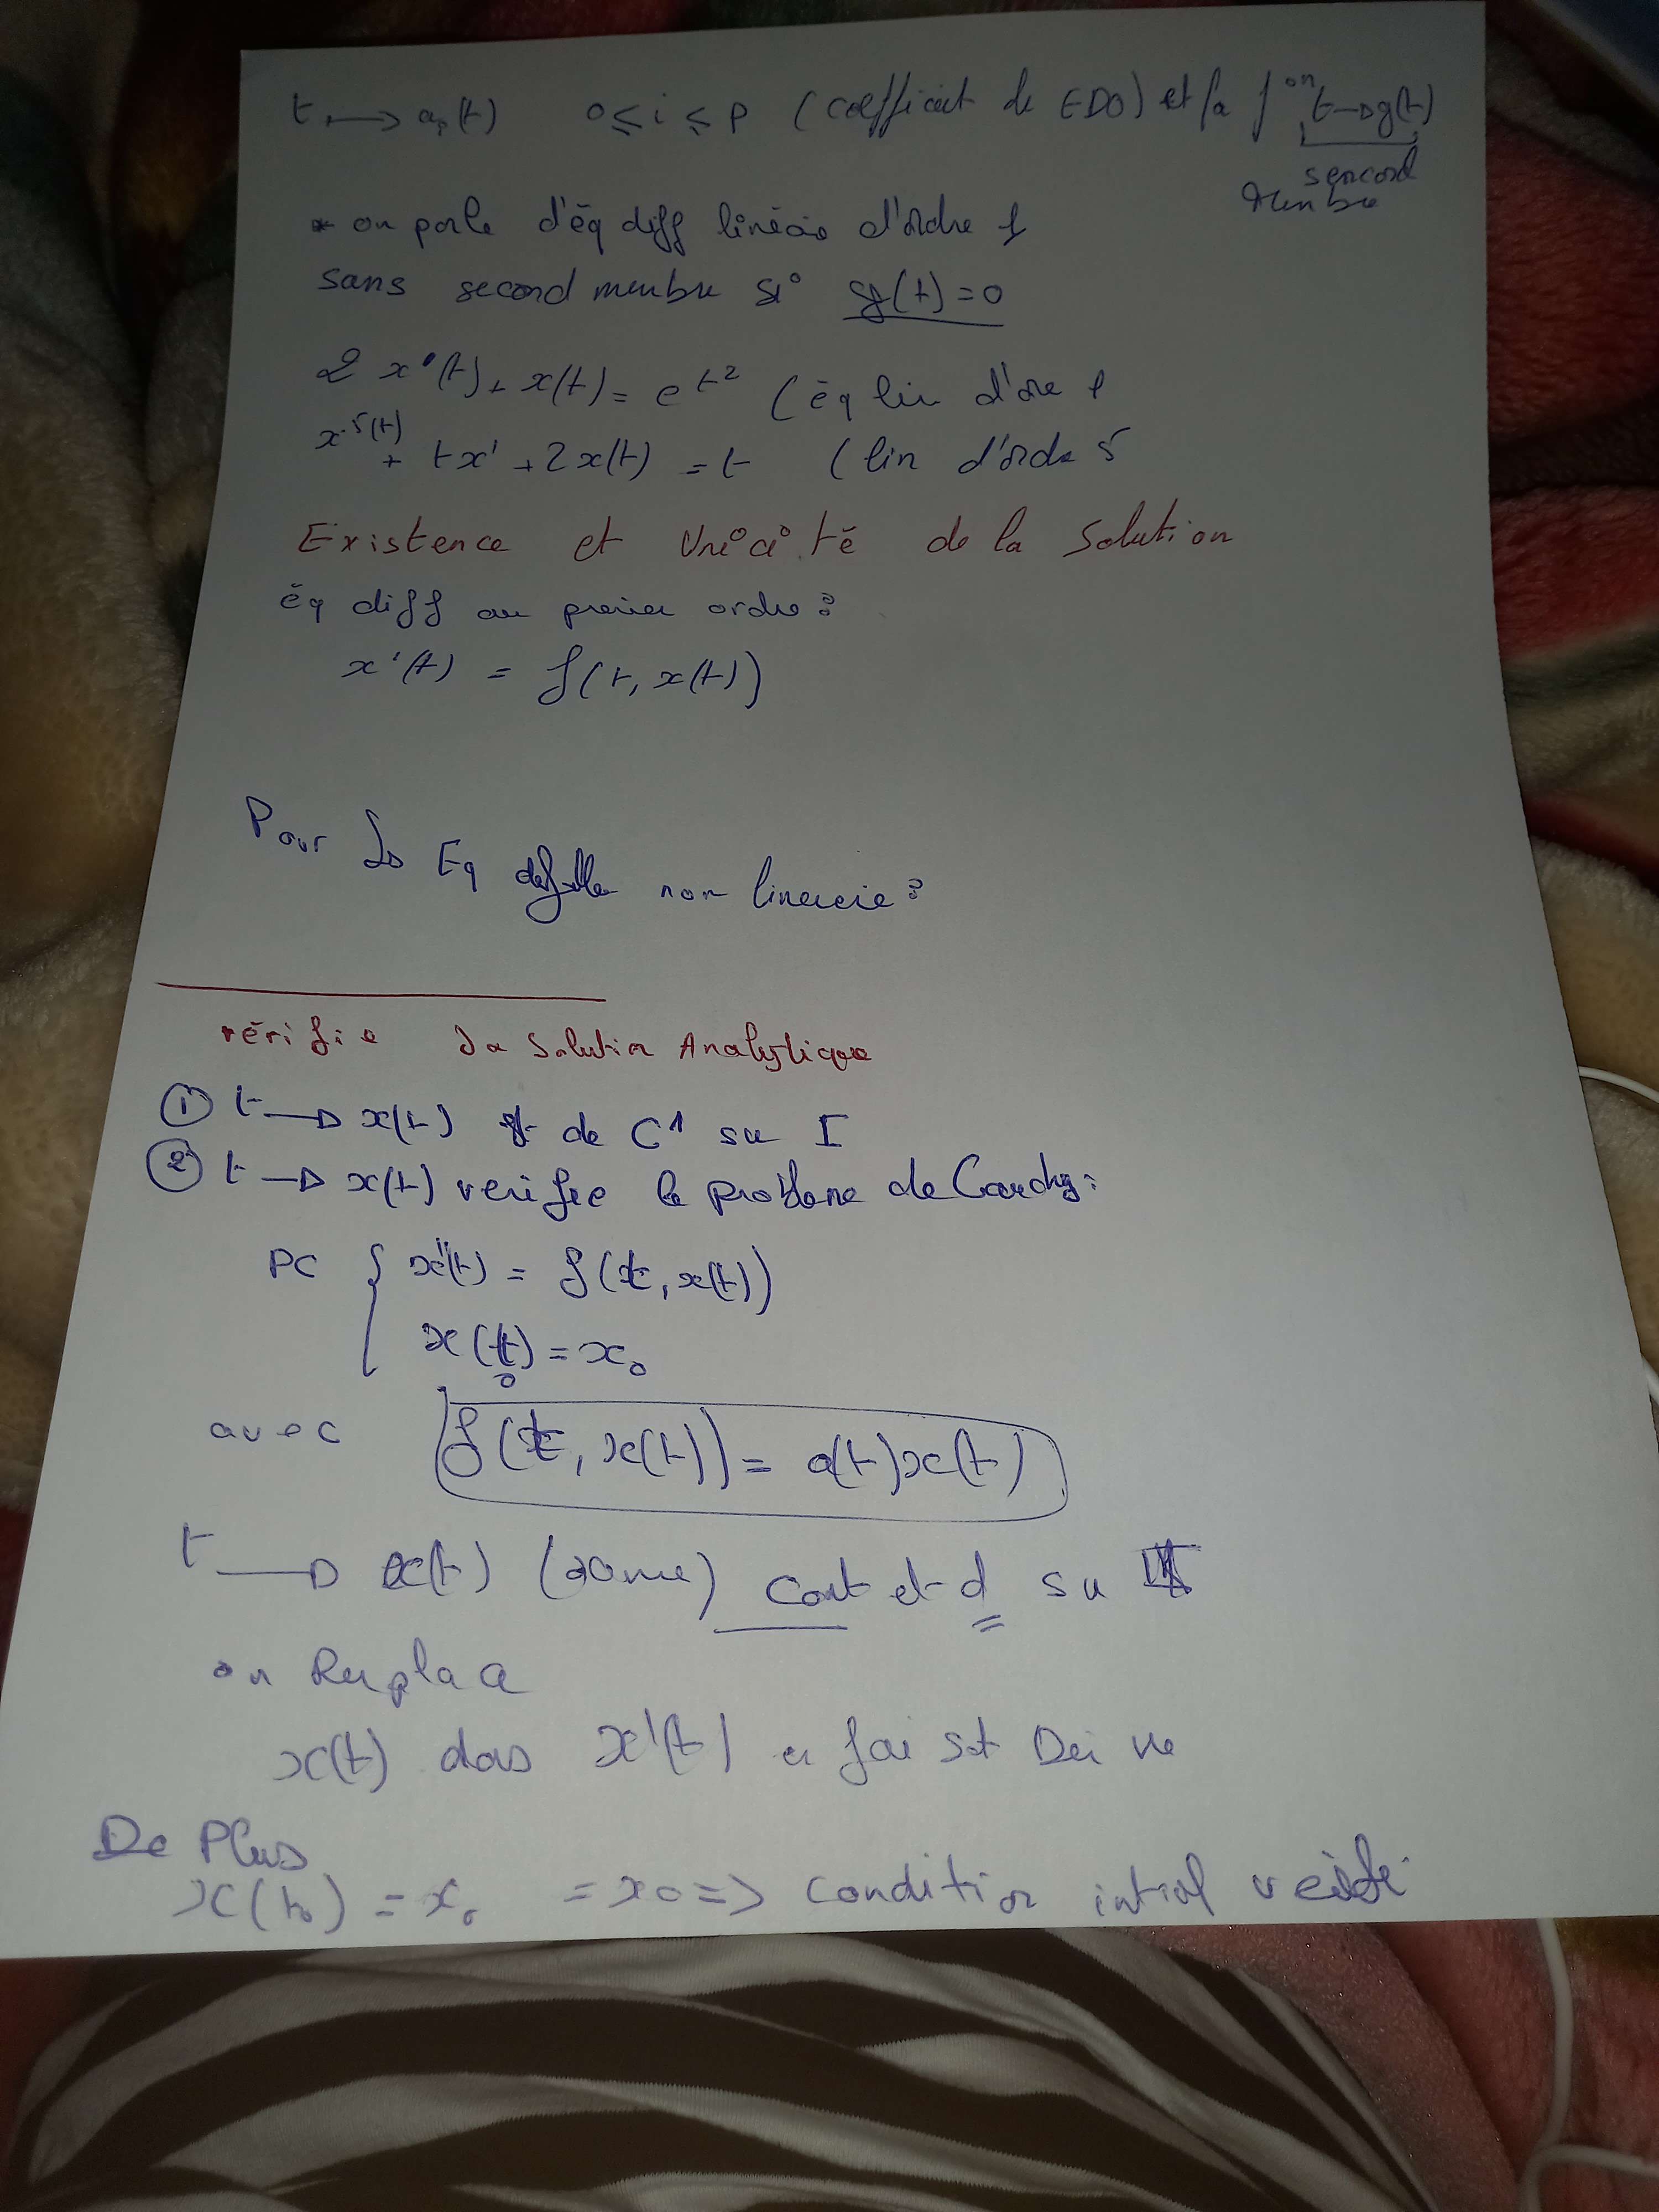 t → ap(t) 0 ≤ i ≤ p (coefficient de EDO) et la f on t → g(t)
sencond
membre
* on parle d'éq diff linéaire d'ordre 1
sans second membre si g(t) = 0
2 x'(t) + x(t) = e t² (éq lin d'ore 1
x 5(t) + tx' + 2x(t) = t (lin d'ordre 5
Existence et Unicité de la Solution
éq diff au premier ordre :
x'(t) = f(t, x(t))
Pour les Eq non lineaire :
vérifie la Solution Analytique
① t → x(t) de C¹ sur I
② t → x(t) verifie le probleme de Cauchy :
PC { x'(t) = f(t, x(t))
x(t0) = x0
avec f(t, x(t)) = a(t)x(t)
t → x(t) cont et d su
on Remplace
x(t) dans x'(t)
De Plus
x(t0) = x0 = x0 => condition intial